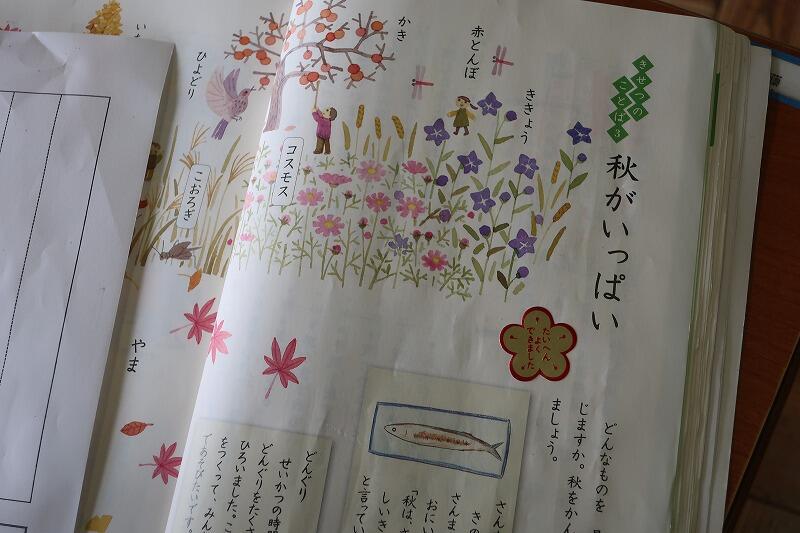 きせつの
ことば3
秋がいっぱい
ききょう
赤とんぼ
かき
コスモス
ひよどり
こおろぎ
やま
たいへん
よく
できました
どんなものを
じますか。秋をかん
ましょう。
さんま
おにい
「秋は、さ
しいき
と言ってい
どんぐり
せいかつの時間
どんぐりをたくさ
ひろいました。こ
をつくって、みん
であそびたいです。